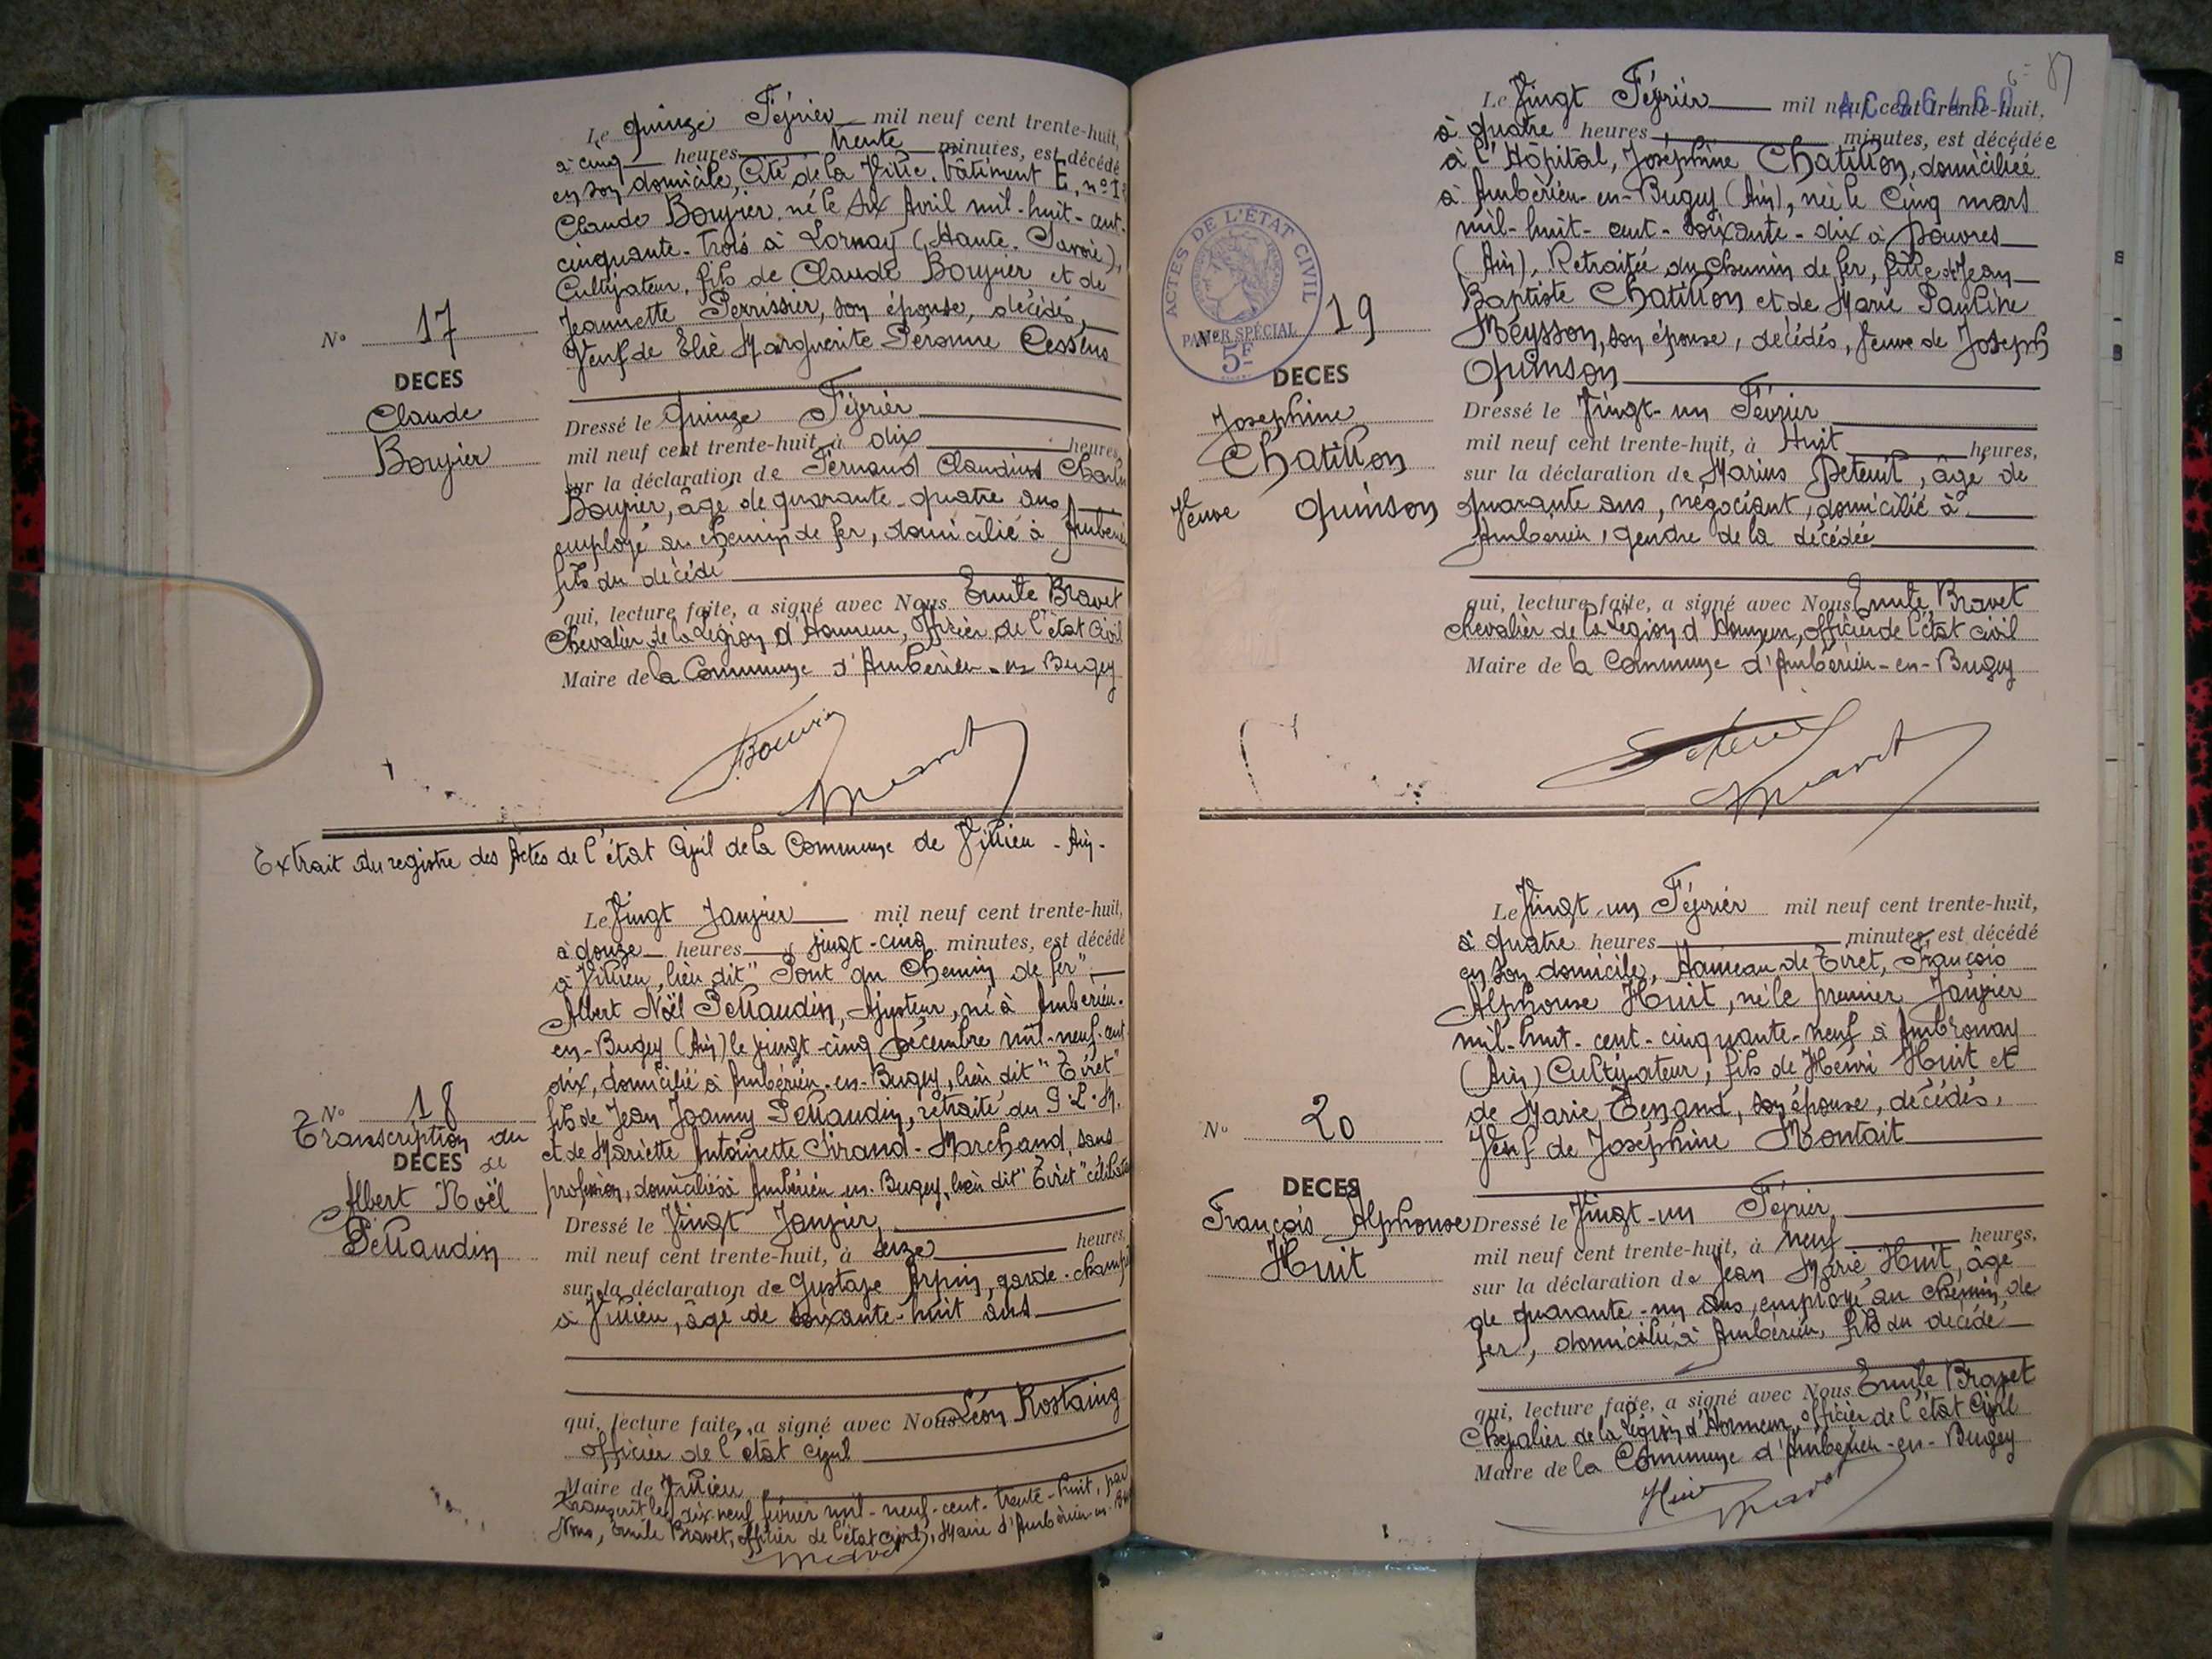 Le quinze Février mil neuf cent trente-huit,
à cinq heures trente minutes, est décédé
en son domicile, Cité de la Ville, bâtiment E, n°
Claude Bouvier, né le six Avril mil-huit-cent-
cinquante-trois à Lornay (Haute-Savoie),
Cultivateur, fils de Claude Bouvier et de
Jeannette Perrissier, son épouse, décédés,
Veuf de Marguerite Péronne Cessens
N° 17
DECES
Claude
Bouvier
Dressé le quinze Février
mil neuf cent trente-huit, à dix heures,
sur la déclaration de Fernand Claudius
Bouvier, âgé de quarante-quatre ans
employé au chemin de fer, domicilié à Ambérieu
fils du décédé
qui, lecture faite, a signé avec Nous Emile Bravet
Chevalier de la Légion d'Honneur, officier de l'état civil
Maire de la Commune d'Ambérieu-en-Bugey
Extrait du registre des Actes de l'état Civil de la Commune de Villieu - Ain -
Le Vingt Janvier mil neuf cent trente-huit,
à douze heures vingt-cinq minutes, est décédé
à Villieu, lieu dit "Pont du Chemin de fer",
Albert Noël Pellaudin, Ajusteur, né à Ambérieu-
en-Bugey (Ain) le vingt-cinq Décembre mil-neuf-cent
dix, domicilié à Ambérieu-en-Bugey, lieu dit "Tiret"
fils de Jean Joanny Pellaudin, retraité du P.L.M.
et de Mariette Antoinette Sirand-Marchand, sans
profession, domiciliés à Ambérieu-en-Bugey, lieu dit "Tiret"
N° 18
Transcription du
DECES de
Albert Noël
Pellaudin
Dressé le Vingt Janvier
mil neuf cent trente-huit, à seize heures,
sur la déclaration de Gustave Arpin, garde-champ
à Villieu, âgé de soixante-huit ans
qui, lecture faite, a signé avec Nous Léon Rostaing
officier de l'état civil
Maire de Villieu
Transcrit le dix-neuf février mil-neuf-cent-trente-huit, par
Nous, Emile Bravet, officier de l'état civil, Maire d'Ambérieu-en-
Le Vingt Février mil neuf cent trente-huit,
à quatre heures minutes, est décédée
à l'Hôpital, Joséphine Chatillon, domiciliée
à Ambérieu-en-Bugey (Ain), née le Cinq mars
mil-huit-cent-soixante-dix à Douvres
(Ain), Retraitée du chemin de fer, fille de Jean
Baptiste Chatillon et de Marie Pauline
Meysson, son épouse, décédés, Veuve de Joseph
Quinson
ACTES DE L'ÉTAT CIVIL
PAPIER SPÉCIAL
5F
N° 19
DECES
Josephine
Chatillon
Veuve Quinson
Dressé le Vingt-un Février
mil neuf cent trente-huit, à Huit heures,
sur la déclaration de Marius Deteuil, âgé de
quarante ans, négociant, domicilié à
Ambérieu, gendre de la décédée
qui, lecture faite, a signé avec Nous Emile Bravet
Chevalier de la Légion d'Honneur, officier de l'état civil
Maire de la Commune d'Ambérieu-en-Bugey
Le Vingt-un Février mil neuf cent trente-huit,
à quatre heures minutes, est décédé
en son domicile, Hameau de Tiret, François
Alphonse Huit, né le premier Janvier
mil-huit-cent-cinquante-neuf à Ambronay
(Ain) Cultivateur, fils de Henri Huit et
de Marie Tenand, son épouse, décédés,
Veuf de Joséphine Montait
N° 20
DECES
François Alphonse
Huit
Dressé le Vingt-un Février
mil neuf cent trente-huit, à neuf heures,
sur la déclaration de Jean Marie Huit, âgé
de quarante-un ans, employé au chemin de
fer, domicilié à Ambérieu, fils du décédé
qui, lecture faite, a signé avec Nous Emile Bravet
Chevalier de la Légion d'Honneur, officier de l'état Civil
Maire de la Commune d'Ambérieu-en-Bugey